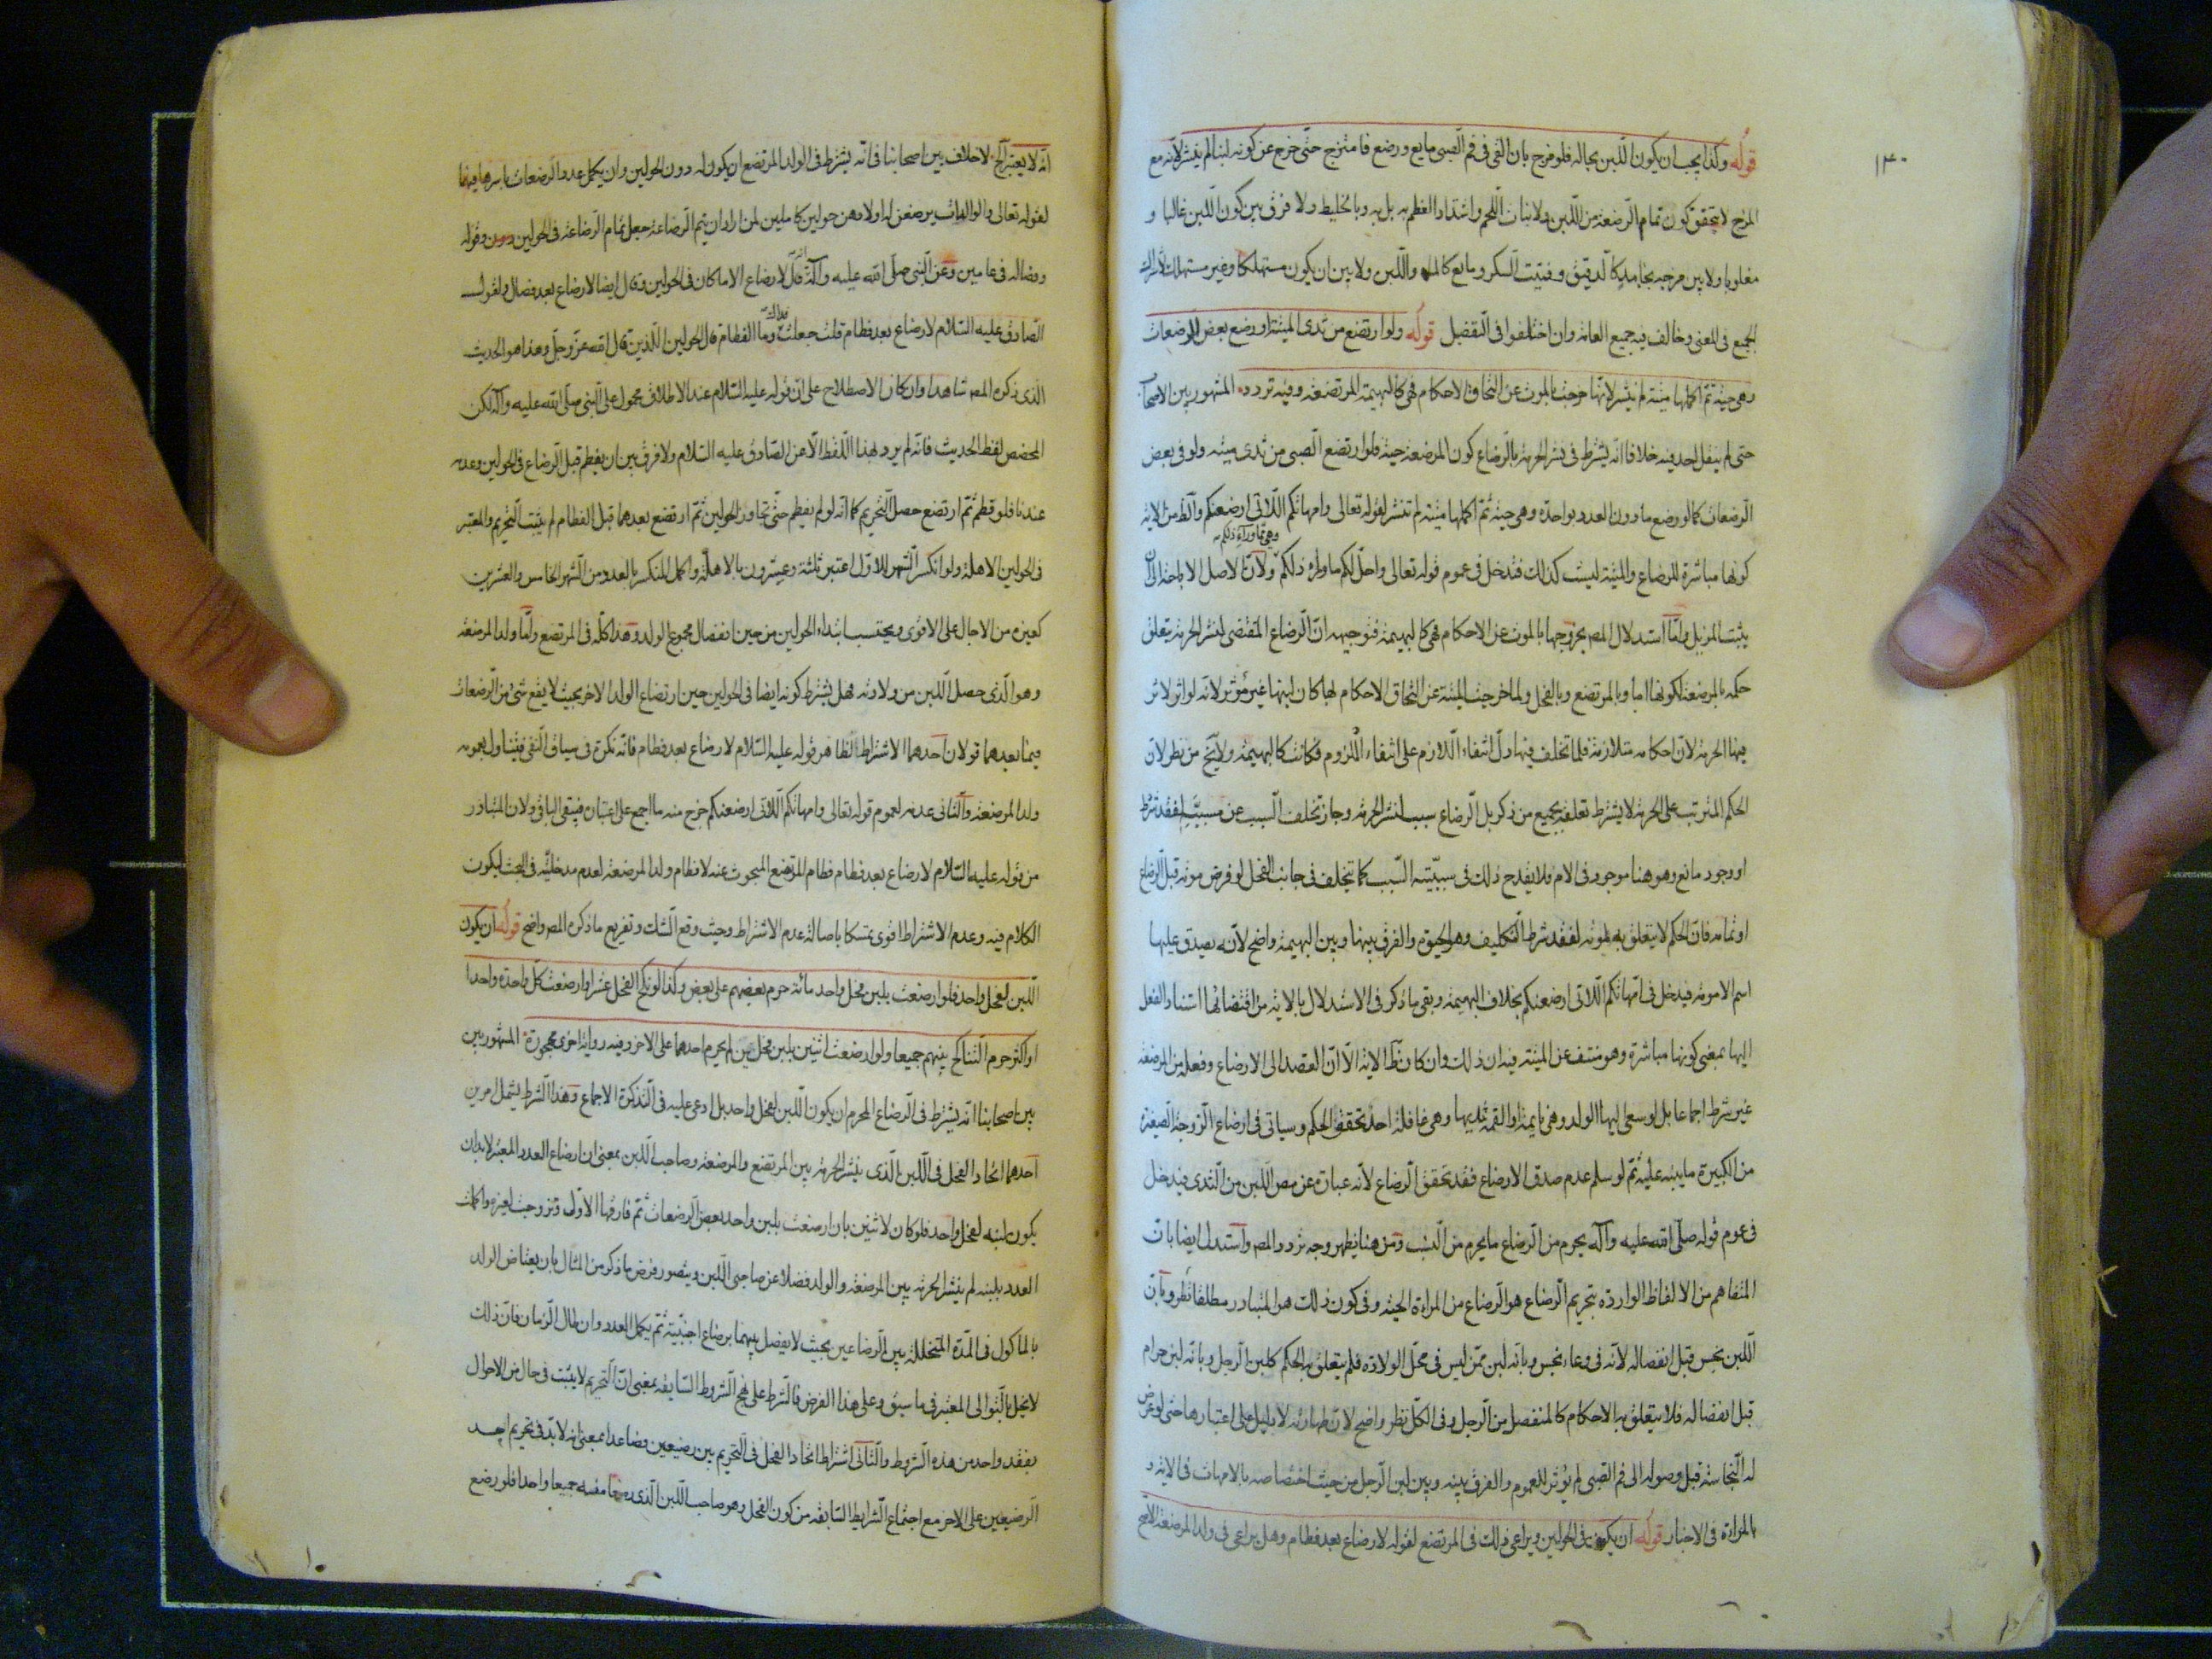 ١٣٠
قوله وكذا يجب ان يكون اللبن بحاله فلو مزج بان القى فى فم الصبى مايع ورضع فامتزج حتى خرج عن كونه لبنا لم ينشر لانه مع
المزج لا يتحقق كون تمام الرضعة من اللبن ولا نبات اللحم واشتداد العظم به بل به وبالخليط ولا فرق بين كون اللبن غالبا و
مغلوبا ولا بين مزجه بجامد كالدقيق وفتيت السكر ومايع كالماء واللبن ولا بين ان يكون مستهلكا وغير مستهلك لاشتراك
الجميع فى المعنى وخالف فيه جميع العامة وان اختلفوا فى التفصيل قوله ولو ارتضع من ثدى الميتة او رضع بعض الرضعات
وهى حية ثم اكملها ميتة لم ينشر لانها خرجت بالموت عن التحاق الاحكام فهى كالبهيمة المرتضعة وفيه تردد المشهور بين الاصحاب
حتى لم ينقل احد فيه خلافا انه يشترط فى نشر الحرمة بالرضاع كون المرضعة حية فلو ارتضع الصبى من ثدى ميتة ولو فى بعض
الرضعات كما لو رضع ما دون العدد بواحدة وهى حية ثم اكملها ميتة لم تنشر لقوله تعالى وامهاتكم اللاتى ارضعنكم والظ من الاية
كونها مباشرة للرضاع والميتة ليست كذلك فتدخل فى عموم قوله تعالى واحل لكم ما وراء ذلكم وهى مما وراء ذلكم ولان الاصل الاباحة الى ان
يثبت المزيل واما استدلال المص بخروجها بالموت عن الاحكام فهى كالبهيمة فتوجيهه ان الرضاع المقتضى لنشر الحرمة يتعلق
حكمه بالمرضعة لكونها اما وبالمرتضع وبالفحل ولما خرجت الميتة عن التحاق الاحكام بها كان لبنها غير مؤثر لانه لو اثر لاثر
فيها الحرمة لان احكامه متلازمة فلما تخلف فيها دل انتفاء اللازم على انتفاء الملزوم فكانت كالبهيمة ولا يخ من نظر لان
الحكم المترتب على الحرمة لا يشترط تعلقه بجميع من ذكر بل الرضاع سبب لنشر الحرمة وجاز تخلف السبب عن مسببه لفقد شرط
او وجود مانع وهو هنا موجود فى الام فلا يقدح ذلك فى سببية السبب كما يتخلف فى جانب الفحل لو فرض موته قبل الرضاع
او تمامه فان الحكم لا يتعلق به بموته لفقد شرط التكليف وهو الحيوة والفرق بينها وبين البهيمة واضح لانه يصدق عليها
اسم الامومة فيدخل فى امهاتكم اللاتى ارضعنكم بخلاف البهيمة وبقى ما ذكر فى الاستدلال بالاية من اقتضائها استناد الفعل
اليها بمعنى كونها مباشرة وهو منتف عن الميتة فيه ان ذلك وان كان ظ الاية الا ان القصد الى الارضاع وفعله من المرضعة
غير شرط اجماعا بل لو سعى اليها الولد وهى نايمة او التقم ثديها وهى غافلة احد تحقق الحكم وسياتى فى ارضاع الزوجة الصغيرة
من الكبيرة ما ينبه عليه ثم لو سلم عدم صدق الارضاع فقد تحقق الرضاع لانه عبارة عن مص اللبن من الثدى فيدخل
فى عموم قوله صلى الله عليه وآله يحرم من الرضاع ما يحرم من النسب ومن هنا يظهر وجه تردد المص واستدل ايضا بان
المتفاهم من الالفاظ الواردة بتحريم الرضاع هو الرضاع من المراة الحية وفى كون ذلك هو المتبادر مطلقا نظر وبان
اللبن نجس قبل انفصاله لانه فى وعاء نجس وبانه لبن ممن ليس فى محل الولادة فلم يتعلق به الحكم كلبن الرجل وبانه لبن حرام
قبل انفصاله فلا يتعلق به الاحكام كالمنفصل من الرجل وفى الكل نظر واضح لان طهارته لا دليل على اعتبارها حتى لو عرض
له النجاسة قبل وصوله الى فم الصبى لم يؤثر للعموم والفرق بينه وبين لبن الرجل من حيث اختصاصه بالامهات فى الاية و
بالمراة فى الاخبار قوله ان يكون فى الحولين ويراعى ذلك فى المرتضع لقوله لا رضاع بعد فطام وهل يراعى فى ولد المرضعة الاصح
انه لا يعتبر الخ لا خلاف بين اصحابنا فى انه يشترط فى الولد المرتضع ان يكون له دون الحولين وان يكمل عدد الرضعات باسرها فيهما
لقوله تعالى والوالدات يرضعن اولادهن حولين كاملين لمن اراد ان يتم الرضاعة جعل تمام الرضاعة فى الحولين وقوله
وفصاله فى عامين وعن النبى صلى الله عليه وآله انه قال لا رضاع الا ما كان فى الحولين وقال ايضا لا رضاع بعد فصال ولقول
الصادق عليه السلام لا رضاع بعد فطام قلت جعلت فداك وما الفطام قال الحولين اللذين قال الله عز وجل وهذا هو الحديث
الذى ذكره المص شاهدا وان كان الاصطلاح على ان قوله عليه السلام عند الاطلاق محمول على النبى صلى الله عليه وآله لكن
المخصص لفظ الحديث فانه لم يرد بهذا اللفظ الا عن الصادق عليه السلام ولا فرق بين ان يفطم قبل الرضاع فى الحولين وعدمه
عندنا فلو فطم ثم ارتضع حصل التحريم كما انه لو لم يفطم حتى تجاوز الحولين ثم ارتضع بعدهما قبل الفطام لم يثبت التحريم والمعتبر
فى الحولين الاهلة ولو انكسر الشهر الاول اعتبر ثلثة وعشرون بالاهلة واكمل المنكسر بالعدد من الشهر الخامس والعشرين
كغيره من الاجال على الاقوى ويحتسب ابتداء الحولين من حين انفصال مجموع الولد وهذا كله فى المرتضع واما ولد المرضعة
وهو الذى حصل اللبن من ولادته فهل يشترط كونه ايضا فى الحولين حين ارتضاع الولد الاخر بحيث لا يقع شئ من الرضعات
فيما بعدهما قولان احدهما الاشتراط لظاهر قوله عليه السلام لا رضاع بعد فطام فانه نكرة فى سياق النفى فيتناول بعمومه
ولد المرضعة والثانى عدمه لعموم قوله تعالى وامهاتكم اللاتى ارضعنكم خرج منه ما اجمع على اعتباره فيبقى الباقى ولان المتبادر
من قوله عليه السلام لا رضاع بعد فطام فطام المرتضع المبحوث عنه لا فطام ولد المرضعة لعدم مدخليته فى البحث ليكون
الكلام فيه وعدم الاشتراط اقوى تمسكا باصالة عدم الاشتراط وحيث وقع الشك وتفريع ما ذكره المص واضح قوله ان يكون
اللبن لفحل واحد فلو ارضعت بلبن فحل واحد مائة حرم بعضهم على بعض وكذا لو نكح الفحل عشرا وارضعت كل واحدة واحدا
او اكثر حرم التناكح بينهم جميعا ولو ارضعت اثنين بلبن فحلين لم يحرم احدهما على الاخر وفيه رواية اخرى مهجورة المشهور بين
بين اصحابنا انه يشترط فى الرضاع المحرم ان يكون اللبن لفحل واحد بل ادعى عليه فى التذكرة الاجماع وهذا الشرط يشمل امرين
احدهما اتحاد الفحل فى اللبن الذى ينشر الحرمة بين المرتضع والمرضعة وصاحب اللبن بمعنى ان ارضاع العدد المعتبر لابد ان
يكون لبنه لفحل واحد فلو كان لاثنين بان ارضعت بلبن واحد بعض الرضعات ثم فارقها الاول وتزوجت بغيره واكملت
العدد بلبنه لم ينشر الحرمة بين المرضعة والولد فضلا عن صاحبى اللبن ويتصور فرض ما ذكر من المثال بان يعتاض الولد
بالماكول فى المدة المتخللة بين الرضاعين بحيث لا يفصل بينهما برضاع اجنبية ثم يكمل العدد وان طال الزمان فان ذلك
لا يخل بالتوالى المعتبر فى ما سبق وعلى هذا الفرض فالشرط على نهج الشروط السابقة بمعنى ان التحريم لا يثبت فى حال من الاحوال
بفقد واحد من هذه الشروط والثانى اشتراط اتحاد الفحل فى التحريم بين رضيعين فصاعدا بمعنى انه لا بد فى تحريم احد
الرضيعين على الاخر مع اجتماع الشرايط السابقة من كون الفحل وهو صاحب اللبن الذى رضعا منه جميعا واحدا فلو رضع